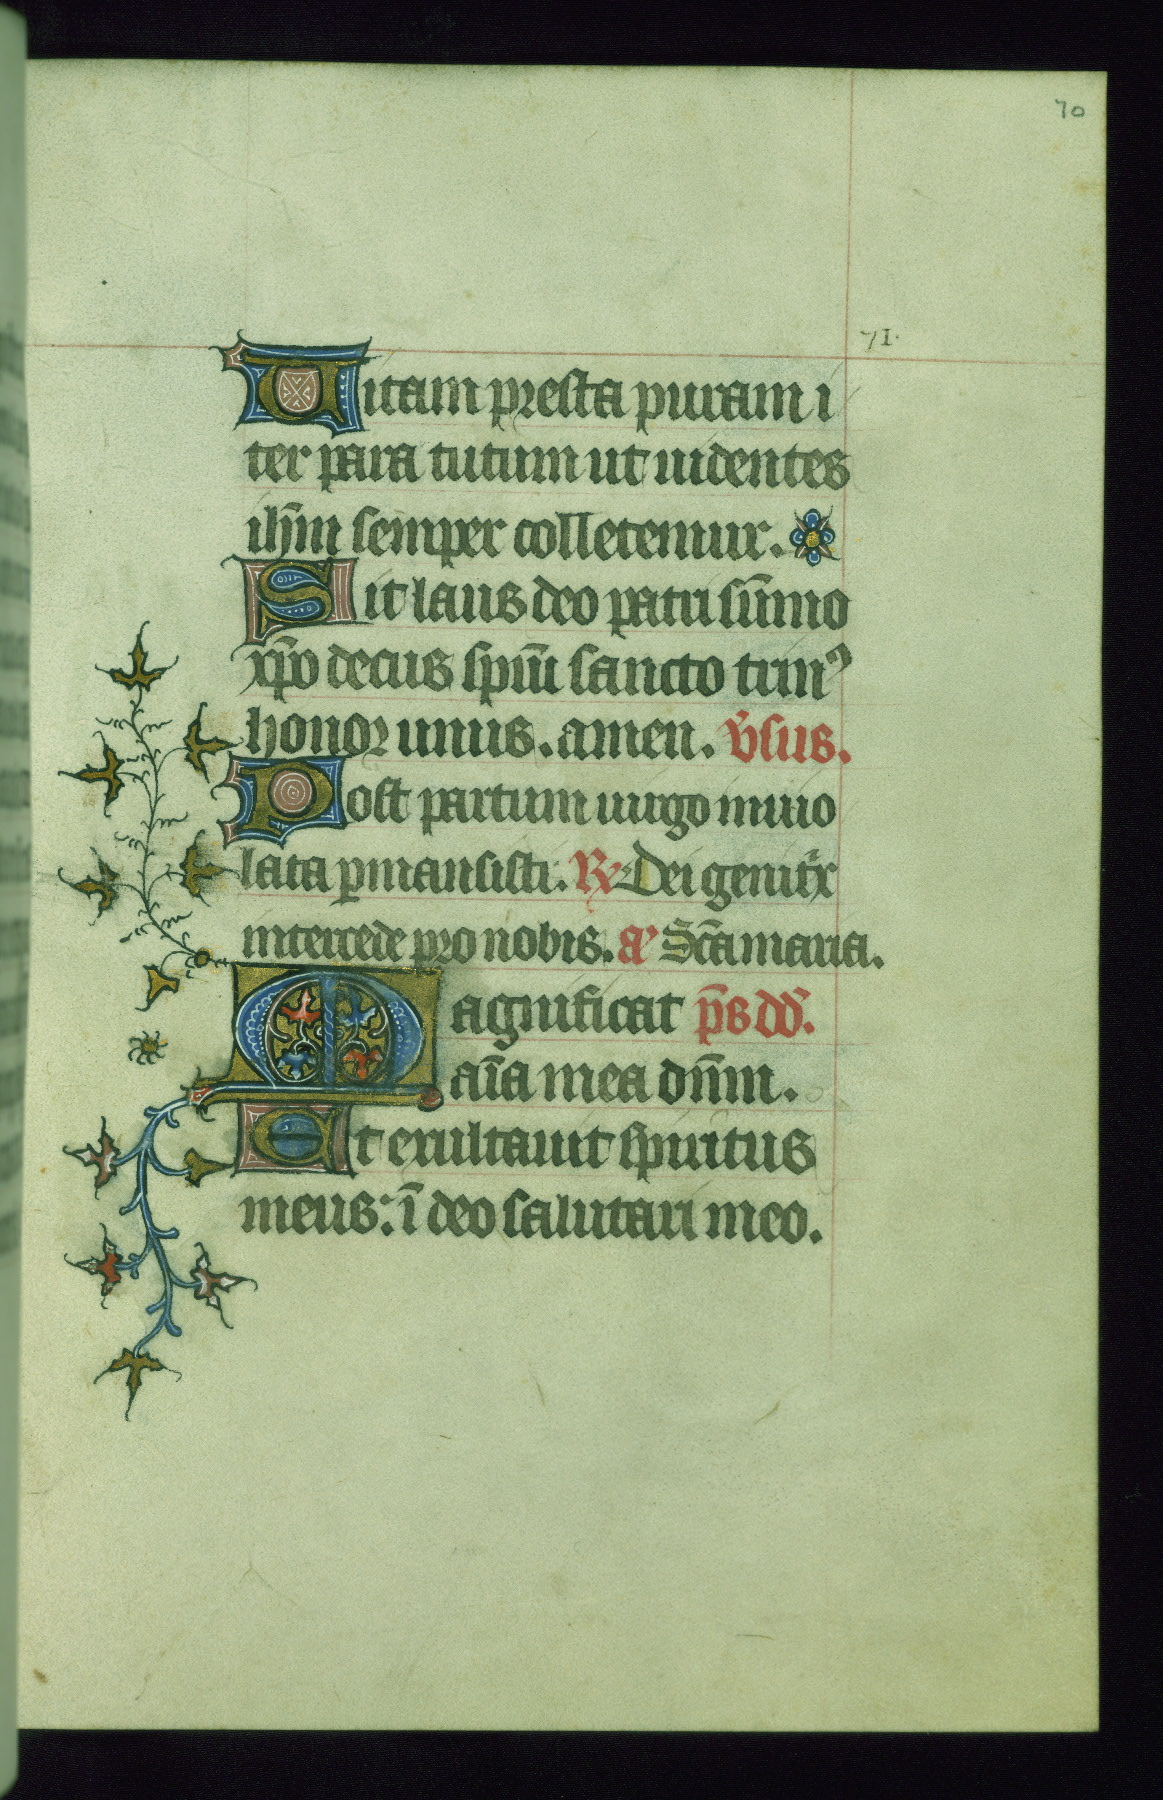 70
71.
Uitam presta puram i
ter para tutum ut uidentes
ih̄m semper colletemur.
Sit laus deo patri sūmo
xp̄o decus sp̄m sancto trinꝰ
honor unus. amen. v̄sus.
Post partum uirgo inuio
lata pmansisti. ℟ Dei genit̄x
intercede pro nobis. añ Sc̄a maria.
Magnificat p̄s dd̄.
aīa mea dn̄m.
Et exultauit spiritus
meus: ī deo salutari meo.